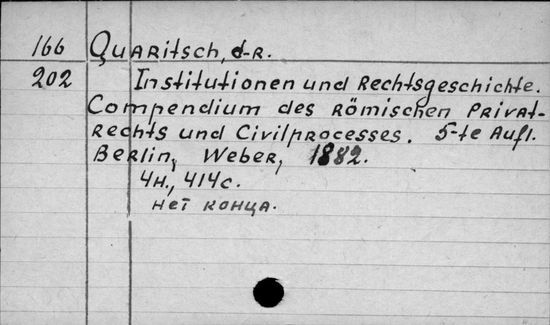 166 Quaritsch, d-r.
202 Institutionen und Rechtsgeschichte.
Compendium des Römischen Privat-
Rechts und Civilprocesses. 5-te Aufl.
Berlin, Weber, 1882.
4н., 414с.
нет конца.